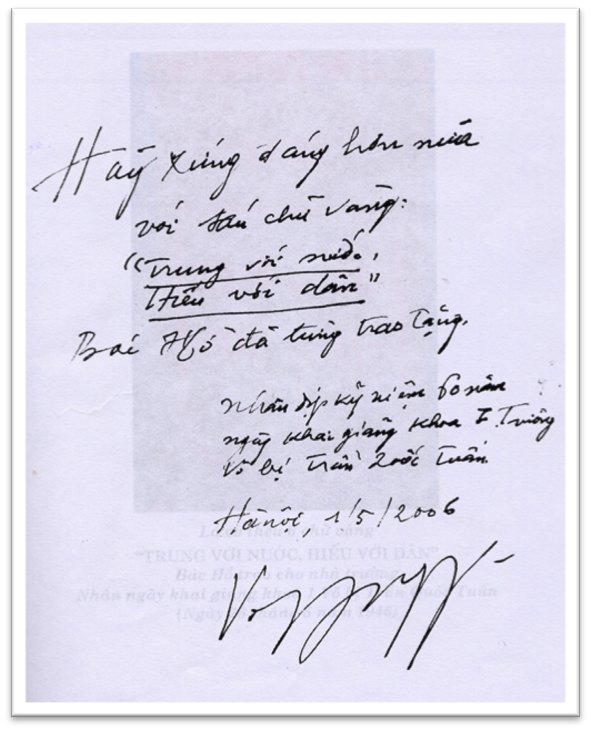 Hãy xứng đáng hơn nữa
với sáu chữ vàng:
"Trung với nước,
Hiếu với dân"
Bác Hồ đã từng trao tặng.
Nhân dịp kỷ niệm 60 năm
ngày khai giảng khoá I Trường
Võ bị Trần Quốc Tuấn
Hà nội, 1/5/2006
"TRUNG VỚI NƯỚC, HIẾU VỚI DÂN"
Bác Hồ trao cho nhà trường
Nhân ngày khai giảng khoá 1 Võ bị Trần Quốc Tuấn